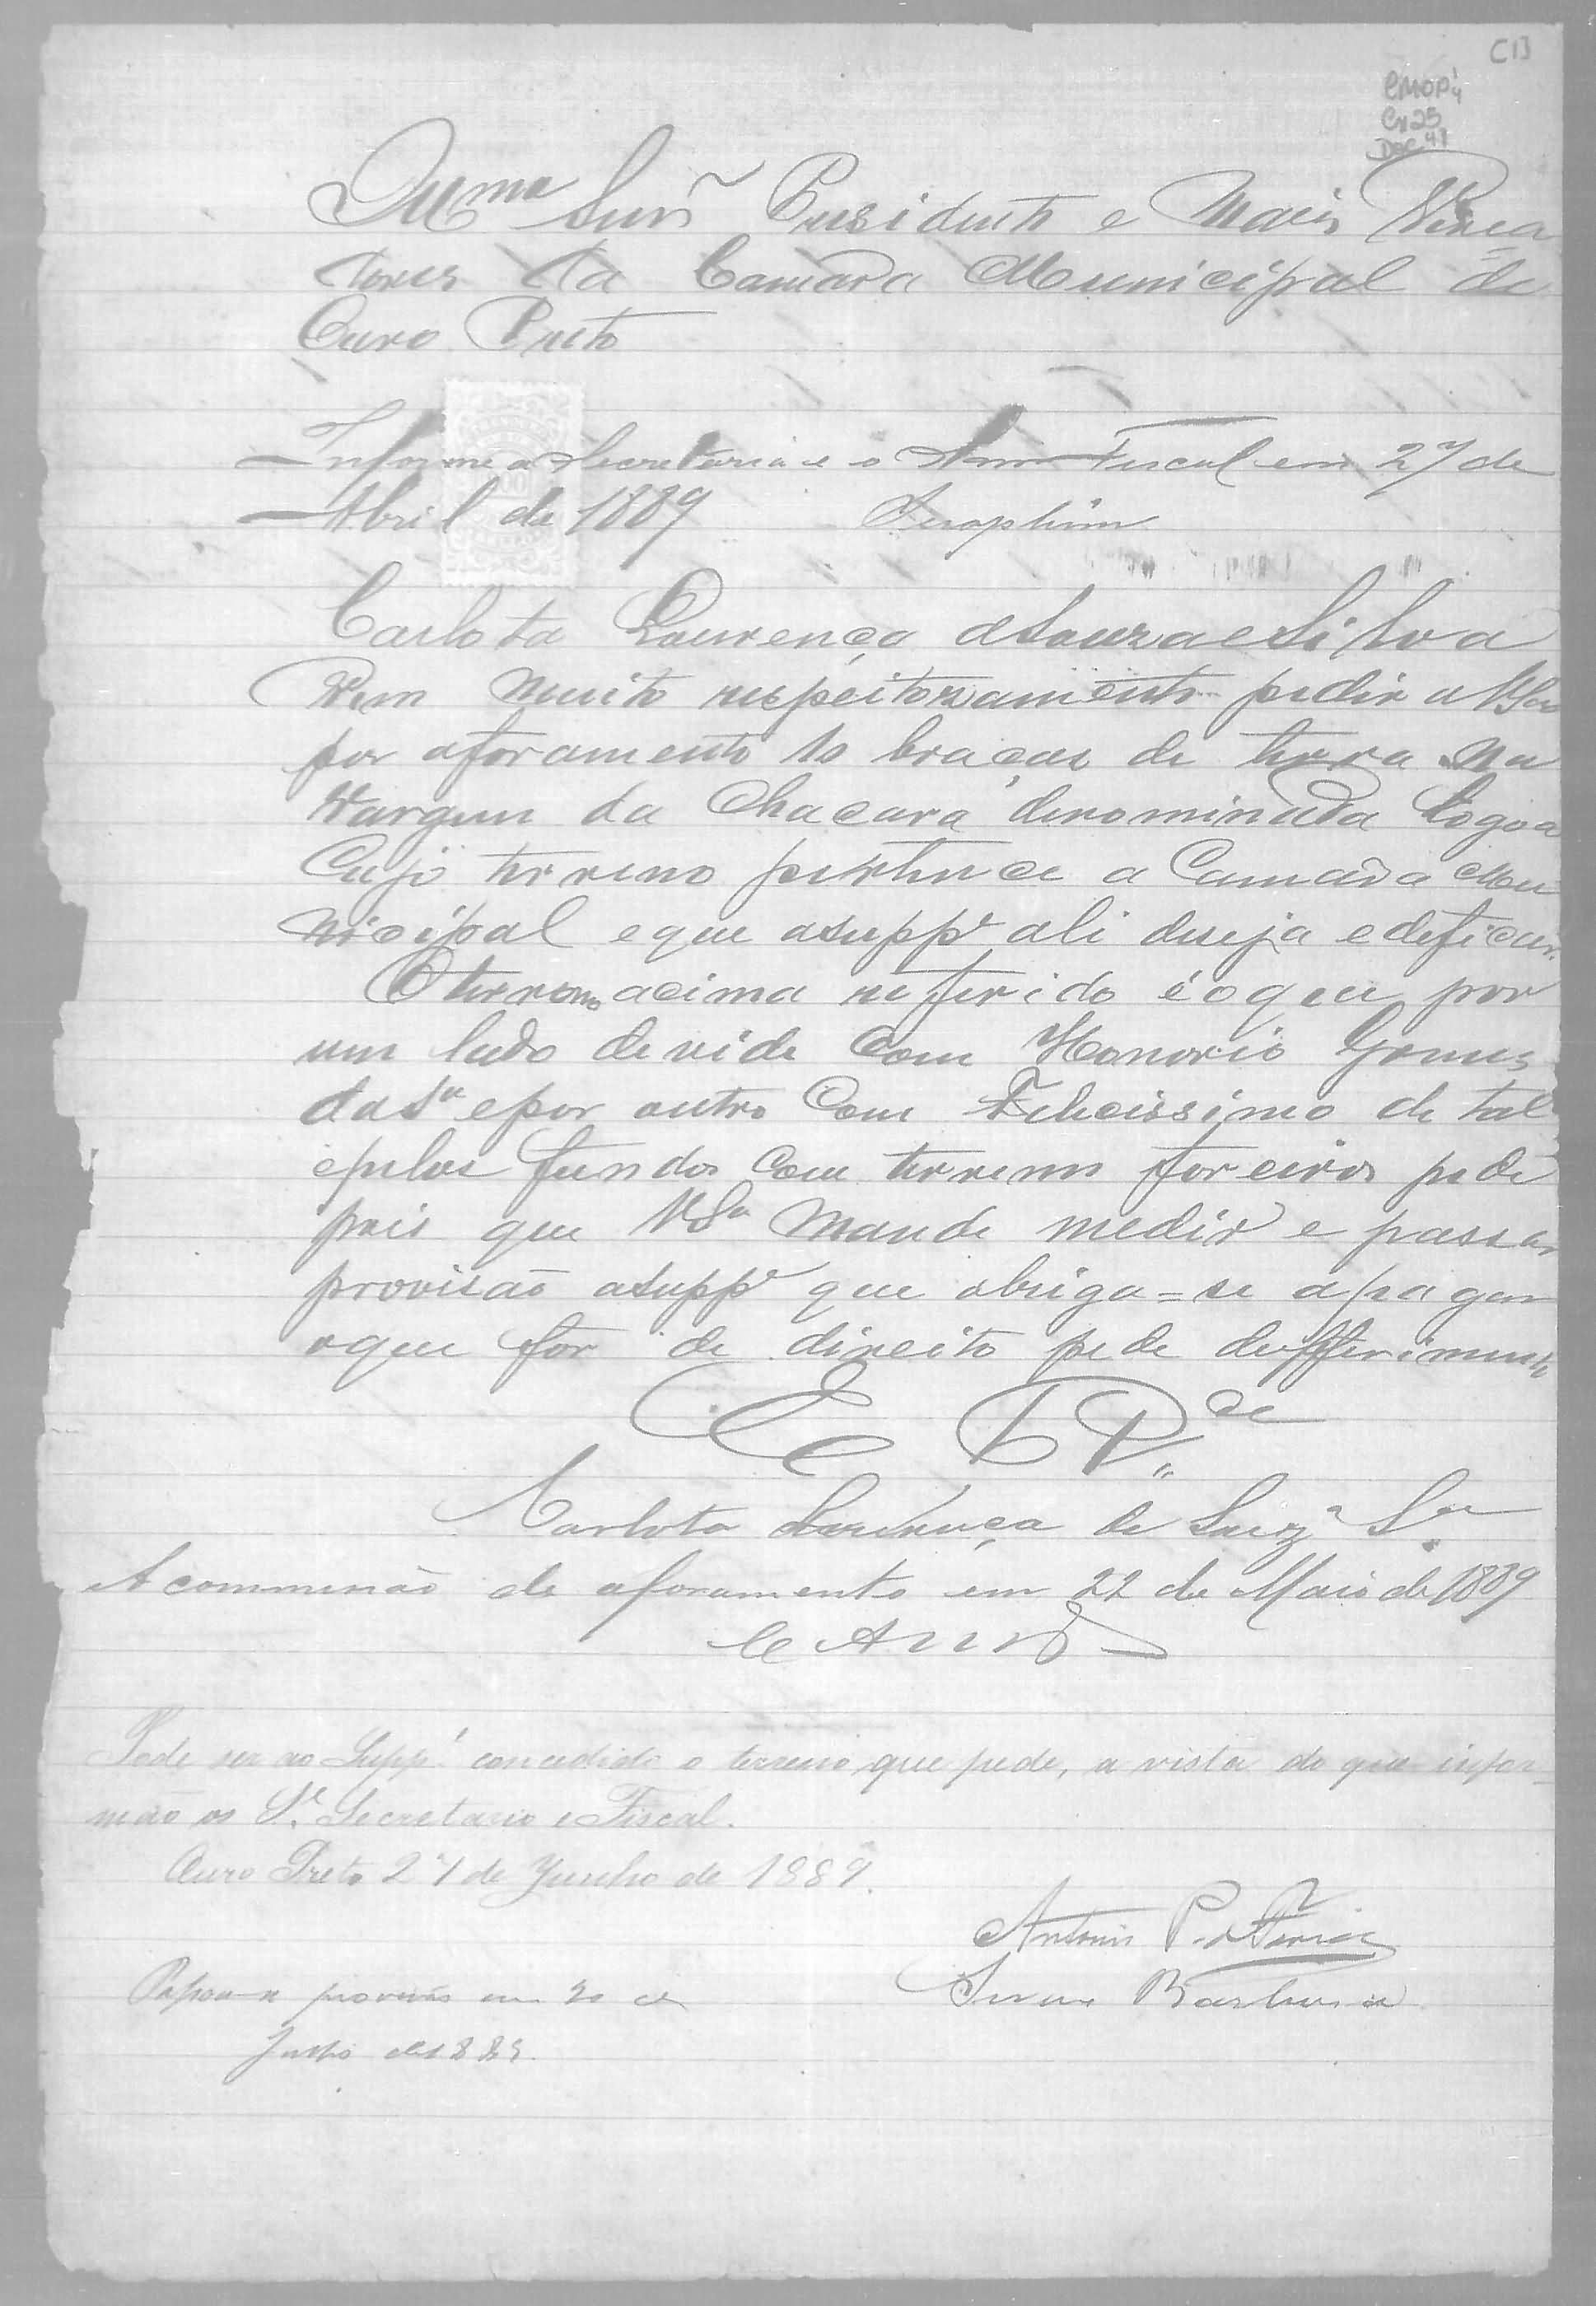 C13
CMOP 4
Cx 25
Doc 41
Illmo Snr Presidente e Mais Verea
dores da Camara Municipal de
Ouro Preto
Informe a Secretaria e o Snr Fiscal em 27 de
Abril de 1889 Seraphim
Carlota Lourença de Souza e Silva
Vem muito respeitozamente pedir a VSas
por aforamento 10 braças de terra na
Vargem da Chacara denominada Logoa
Cujo terreno pertence a Camara Mu
nicipal e que a suppe ali deseja edeficar.
O terreno acima referido é o que por
um lado devide com Honorio Gomes
da Sa e por outro com Felicissimo de tal
e pelos fundos com terrenos foreiros pede
pois que VSa mande medir e passar
provisão a suppe que obriga=se a pagar
o que for de direito pede defferimento
E R Mce
Carlota Lourença de Souza Sa
A commissão de aforamento em 22 de Maio de 1889
Pode ser ao Suppe concedido o terreno que pede, a vista do que infor-
mão os Srs Secretario e Fiscal.
Ouro Preto 27 de Junho de 1889.
Antonio P. Faria
Barbosa
Passou-se provisão em 20 de
Julho de 1889.